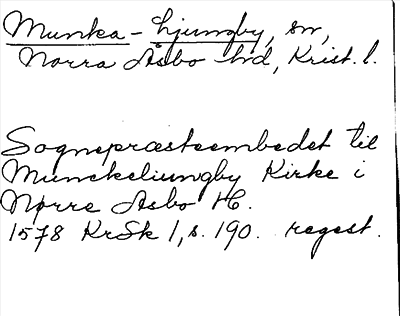 Munka-Ljungby, sn,
Norra Åsbo hd, Krist. l.
Sognepræsteembedet til
Munckeliungby Kirke i
Nørre Asbo H.
1578 KrSk 1, s. 190. regest.